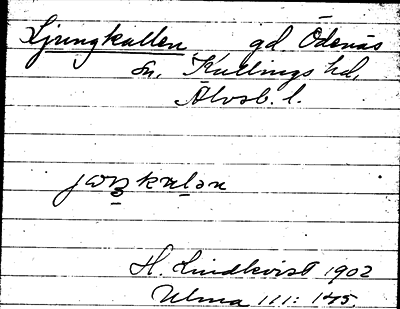 Ljungkullen, gd Ödenäs
sn, Kullings hd,
Älvsb. l.
H. Lindkvist 1902
Ulma 111: 145.